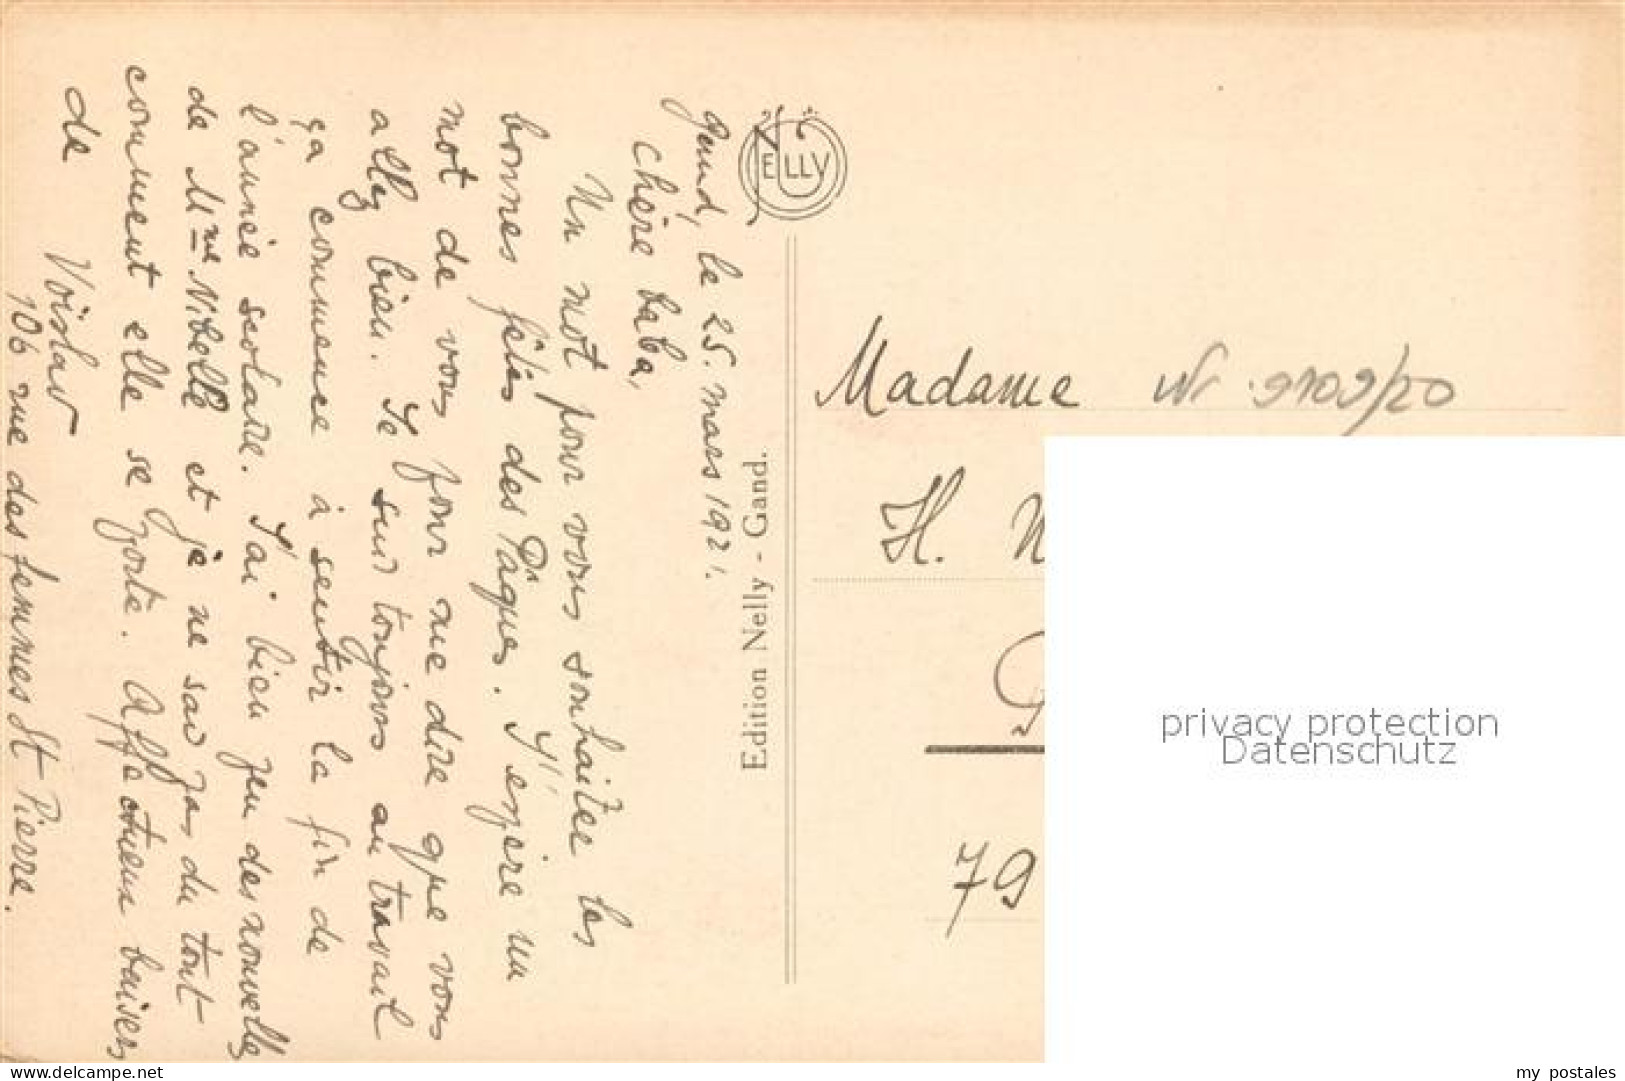 Gand, le 25. mars 192
Chère baba,
Un mot pour vous souhaitée les
bonnes fêtes des Pâques. J'espère un
mot de vous pour me dire que vous
allez bien. Je suis toujours au travail
ça commence à sentir la fin de
l'année scolaire. J'ai bien peu des nouvelle
de Mme Nibelle et je ne sais pas du tout
comment elle se porte. Affectueux baisers
de Voislav
106 rue des femmes St Pierre.
NELLY
Edition Nelly - Gand.
Madame Nr. 9109/20
H.
79
privacy protection
Datenschutz
www.delcampe.net
my_postales